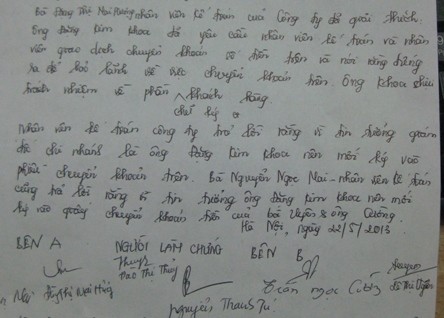 Bà Đặng Thị Mai Hương nhân viên kế toán của Công ty đã giải thích:
Ông Đặng Kim Khoa đã yêu cầu nhân viên kế toán và nhân
viên giao dịch chuyển khoản số tiền trên và nói rằng đứng
ra để bảo lãnh về việc chuyển khoản trên. Ông Khoa chịu
trách nhiệm về phần khách hàng.
chữ ký
Nhân viên kế toán công ty trả lời rằng vì tin tưởng giám
đốc chi nhánh là ông Đặng Kim Khoa nên mới ký vào
phiếu chuyển khoản trên. Bà Nguyễn Ngọc Mai - nhân viên kế toán
cũng trả lời rằng vì tin tưởng ông Đặng Kim Khoa nên mới
ký vào giấy chuyển khoản tiền của bà Uyên & ông Cường.
Hà Nội, ngày 22/5/2013
BÊN A NGƯỜI LÀM CHỨNG BÊN B
Đào Thị Thủy
Đặng Thị Mai Hương Trần Ngọc Cường
Nguyễn Thanh Tú